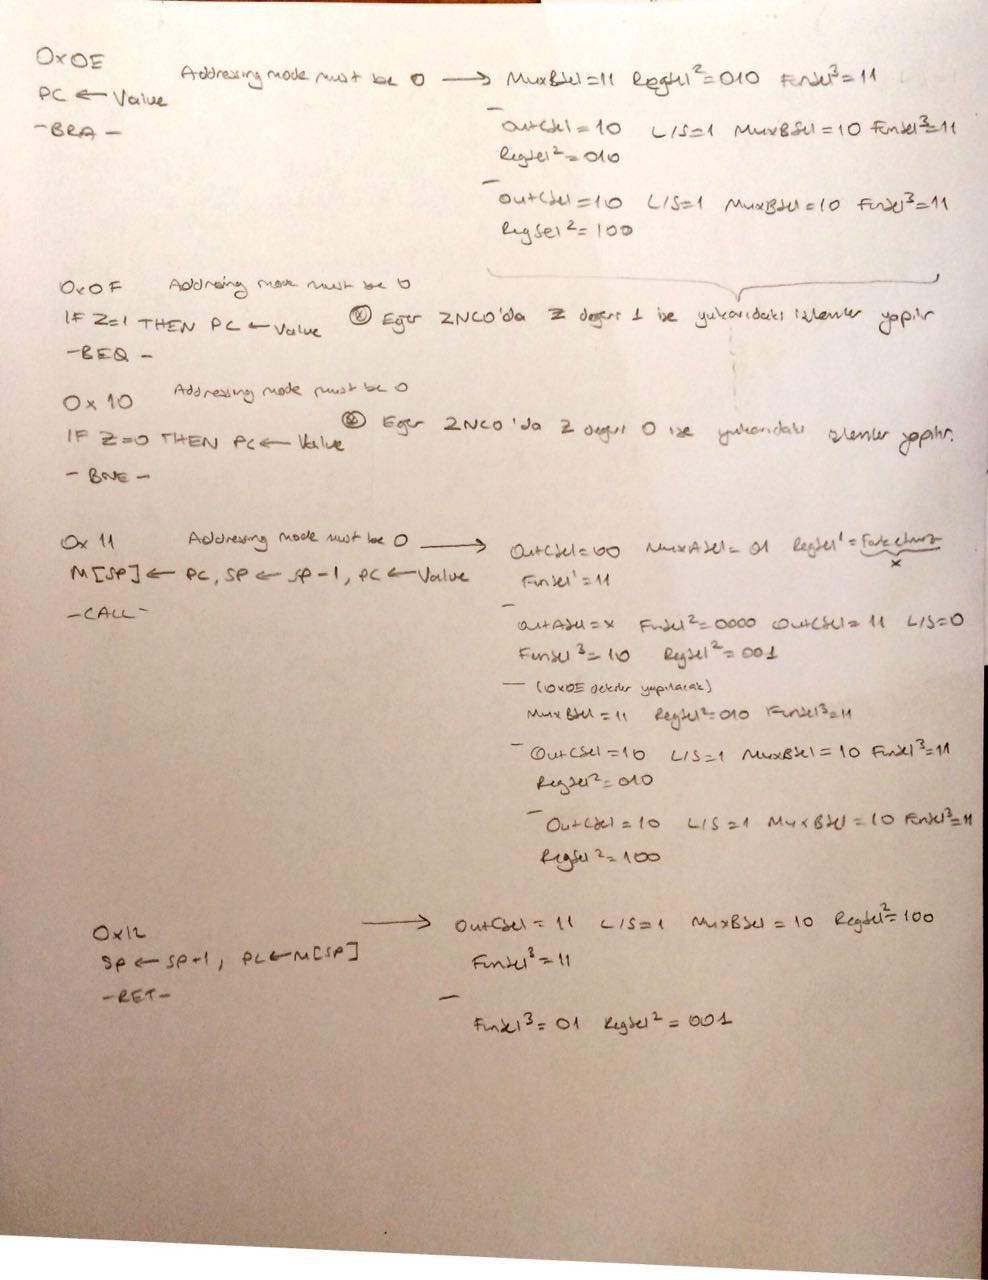 0x0E
Addressing mode must be 0 → MuxBSel=11 RegSel²=010 FunSel³=11
PC ← Value
-BRA-
OutCSel=10 L/S=1 MuxBSel=10 FunSel³=11
RegSel²=010
OutCSel=10 L/S=1 MuxBSel=10 FunSel³=11
RegSel²=100
0x0F Addressing mode must be 0
IF Z=1 THEN PC ← Value
Eğer ZNCO'da Z değeri 1 ise yukarıdaki işlemler yapılır
-BEQ-
0x10 Addressing mode must be 0
IF Z=0 THEN PC ← Value
Eğer ZNCO'da Z değeri 0 ise yukarıdaki işlemler yapılır.
-BNE-
0x11 Addressing mode must be 0 → OutCSel=00 MuxASel=01 RegSel¹=Farketmez
x
M[SP] ← PC, SP ← SP-1, PC ← Value
FunSel¹=11
-CALL-
OutASel=x FunSel²=0000 OutCSel=11 L/S=0
FunSel³=10 RegSel²=001
(0x0E dekiler yapılacak)
MuxBSel=11 RegSel²=010 FunSel³=11
OutCSel=10 L/S=1 MuxBSel=10 FunSel³=11
RegSel²=010
OutCSel=10 L/S=1 MuxBSel=10 FunSel³=11
RegSel²=100
0x12 → OutCSel=11 L/S=1 MuxBSel=10 RegSel²=100
SP ← SP+1, PC ← M[SP]
FunSel³=11
-RET-
FunSel³=01 RegSel²=001